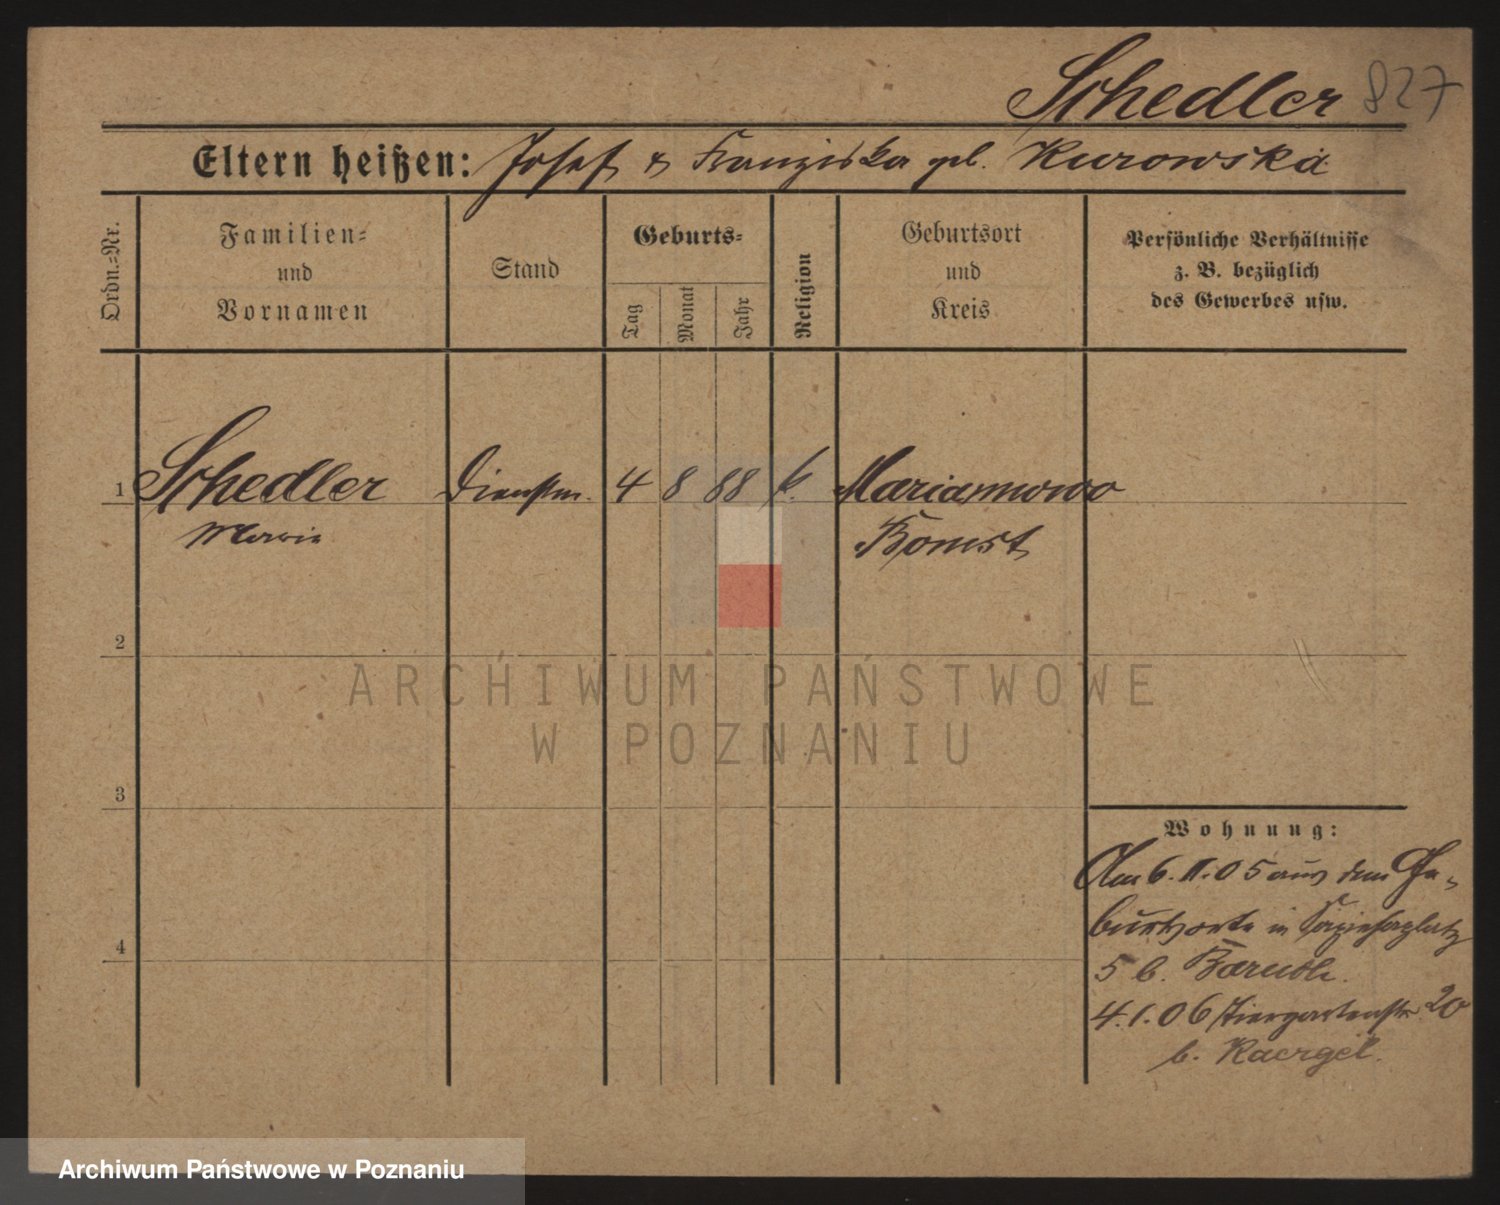 Schedler 827
Eltern heißen: Josef & Franziska geb. Kurowska
Ordn.=Nr.
Familien=
und
Vornamen
Stand
Geburts=
Tag
Monat
Jahr
Religion
Geburtsort
und
Kreis
Persönliche Verhältnisse
z. B. bezüglich
des Gewerbes usw.
1 Schedler Dienstm. 4 8 88 k. Mariannowo
Marie Bomst
2
3
4
Wohnung:
Am 6. 11. 05 aus dem Ge-
burtsorte in Sapiehaplatz
5 b.
4. 1. 06 Tiergartenstr 20
b. Kaergel.
ARCHIWUM PAŃSTWOWE
W POZNANIU
Archiwum Państwowe w Poznaniu